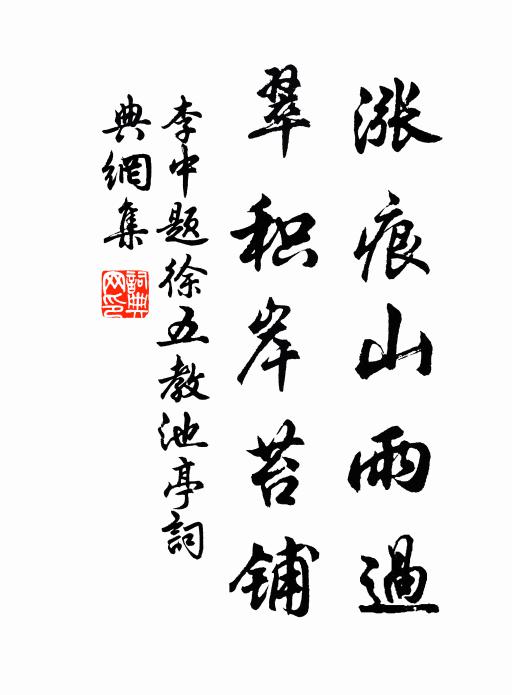 漲痕山雨過
翠积岸苔铺
李中题徐五教池亭詞
典網集
詞典网印